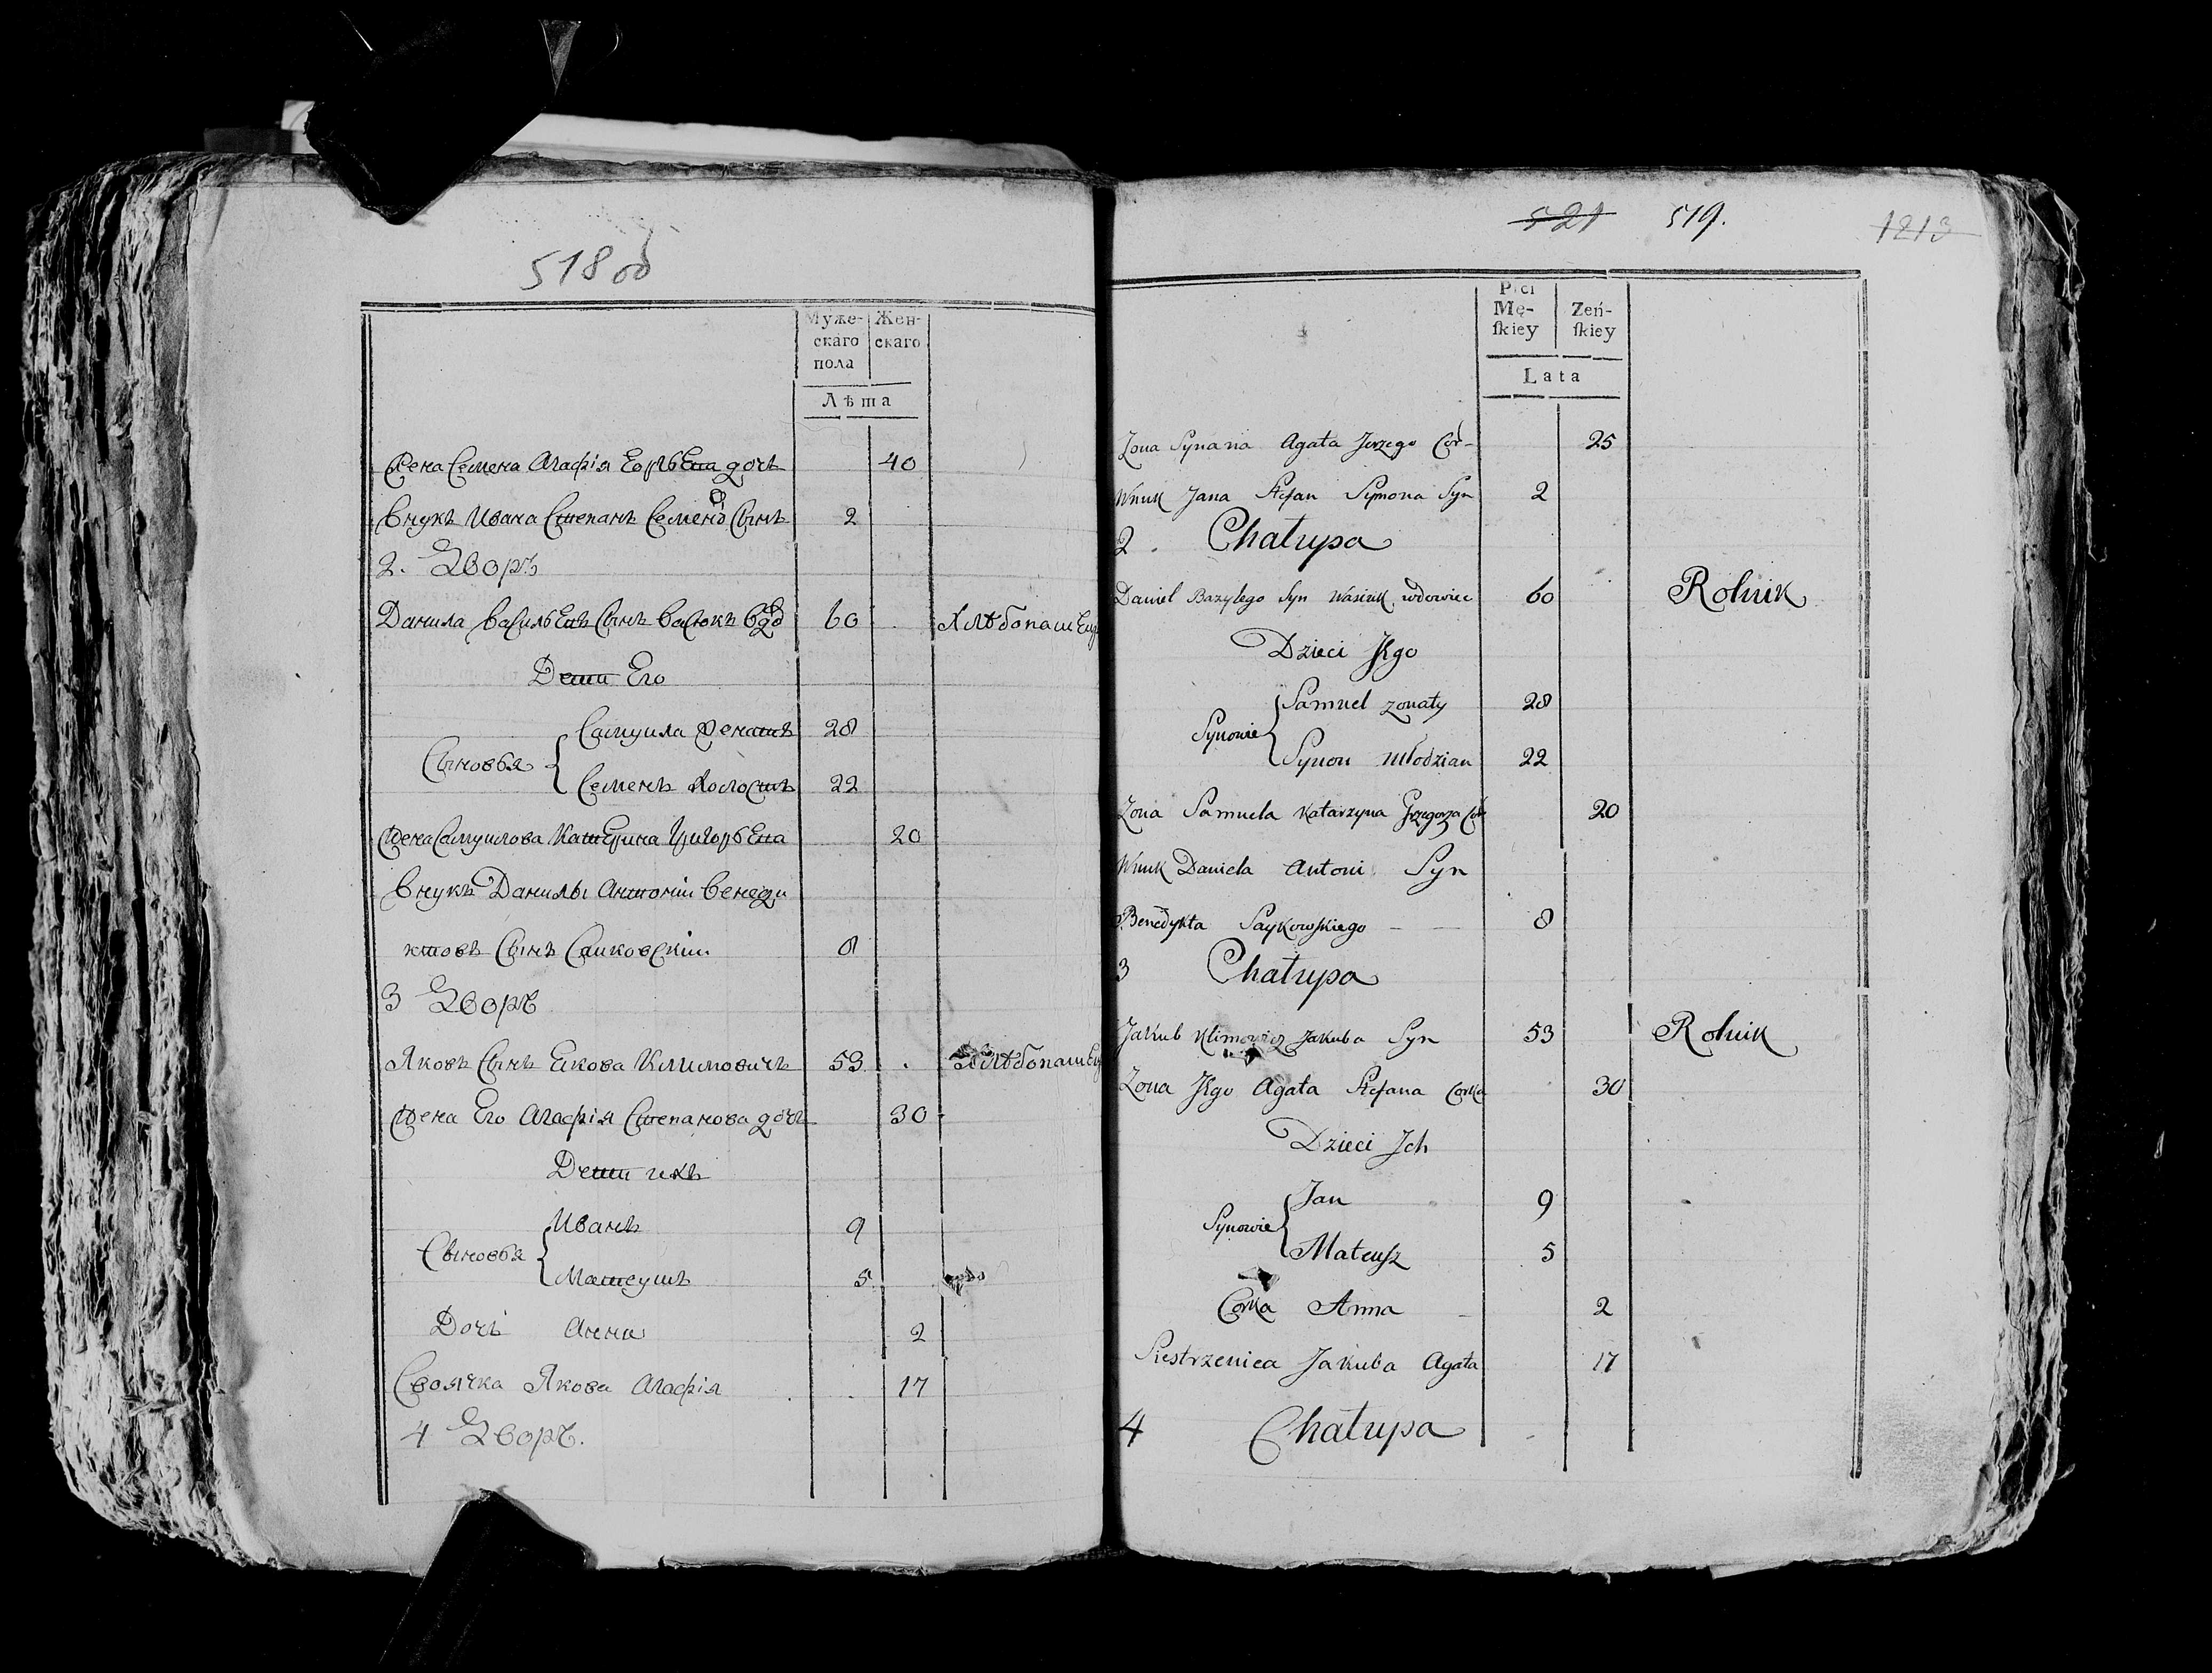 518 об
Муже-
скаго
пола
Жен-
скаго
Лѣта
Жена Семена Агафія Егорьева дочь 40
Внукъ Ивана Степанъ Семеновъ Сынъ 2
2. Дворъ
Данила Васильевъ Сынъ Васюкъ вдо 60 Хлѣбопашец
Дети Его
Сыновья
Самуила женатъ 28
Семенъ Холостъ 22
Жена Самуилова Катерина Григорьева 20
Внукъ Данилы Антоній Бенеди
ктовъ Сынъ Сайковскій 8
3 Дворъ
Яковъ Сынъ Якова Климовичъ 53 Хлѣбопашец
Жена Его Агафія Степанова дочь 30
Дети ихъ
Сыновья
Иванъ 9
Матеушъ 5
Дочь Анна 2
Своячка Якова Агафія 17
4 Дворъ.
521 519. 1213
Płci
Mę-
ſkiey
Zeń-
ſkiey
Lata
Zona Symona Agata Jerzego Cór- 25
Wnuk Jana Stefan Symona Syn 2
2. Chałupa
Daniel Bazylego Syn Wasiuk wdowiec 60 Rolnik
Dzieci Jego
Synowie
Samuel zonaty 28
Symon Młodzian 22
Zona Samuela Katarzyna Grzegorza Cór 20
Wnuk Daniela Antoni Syn
Benedykta Saykowskiego - 8
3 Chałupa
Jakub Klimowicz Jakuba Syn 53 Rolnik
Zona Jego Agata Stefana Corka 30
Dzieci Ich
Synowie
Jan 9
Mateusz 5
Corka Anna 2
Siestrzenica Jakuba Agata 17
4 Chałupa